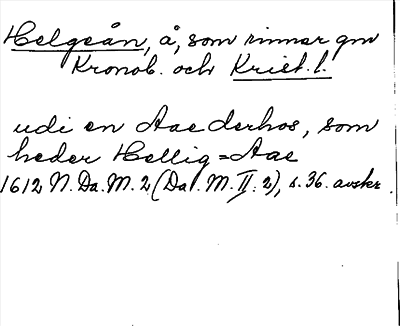 Helgeån, å, som rinner gm
Kronob. och Krist. l.
udi en Aae derhos, som
heder Hellig=Aae
1612 N. Da. M. 2 (Da. M. II: 2), s. 36. avskr.